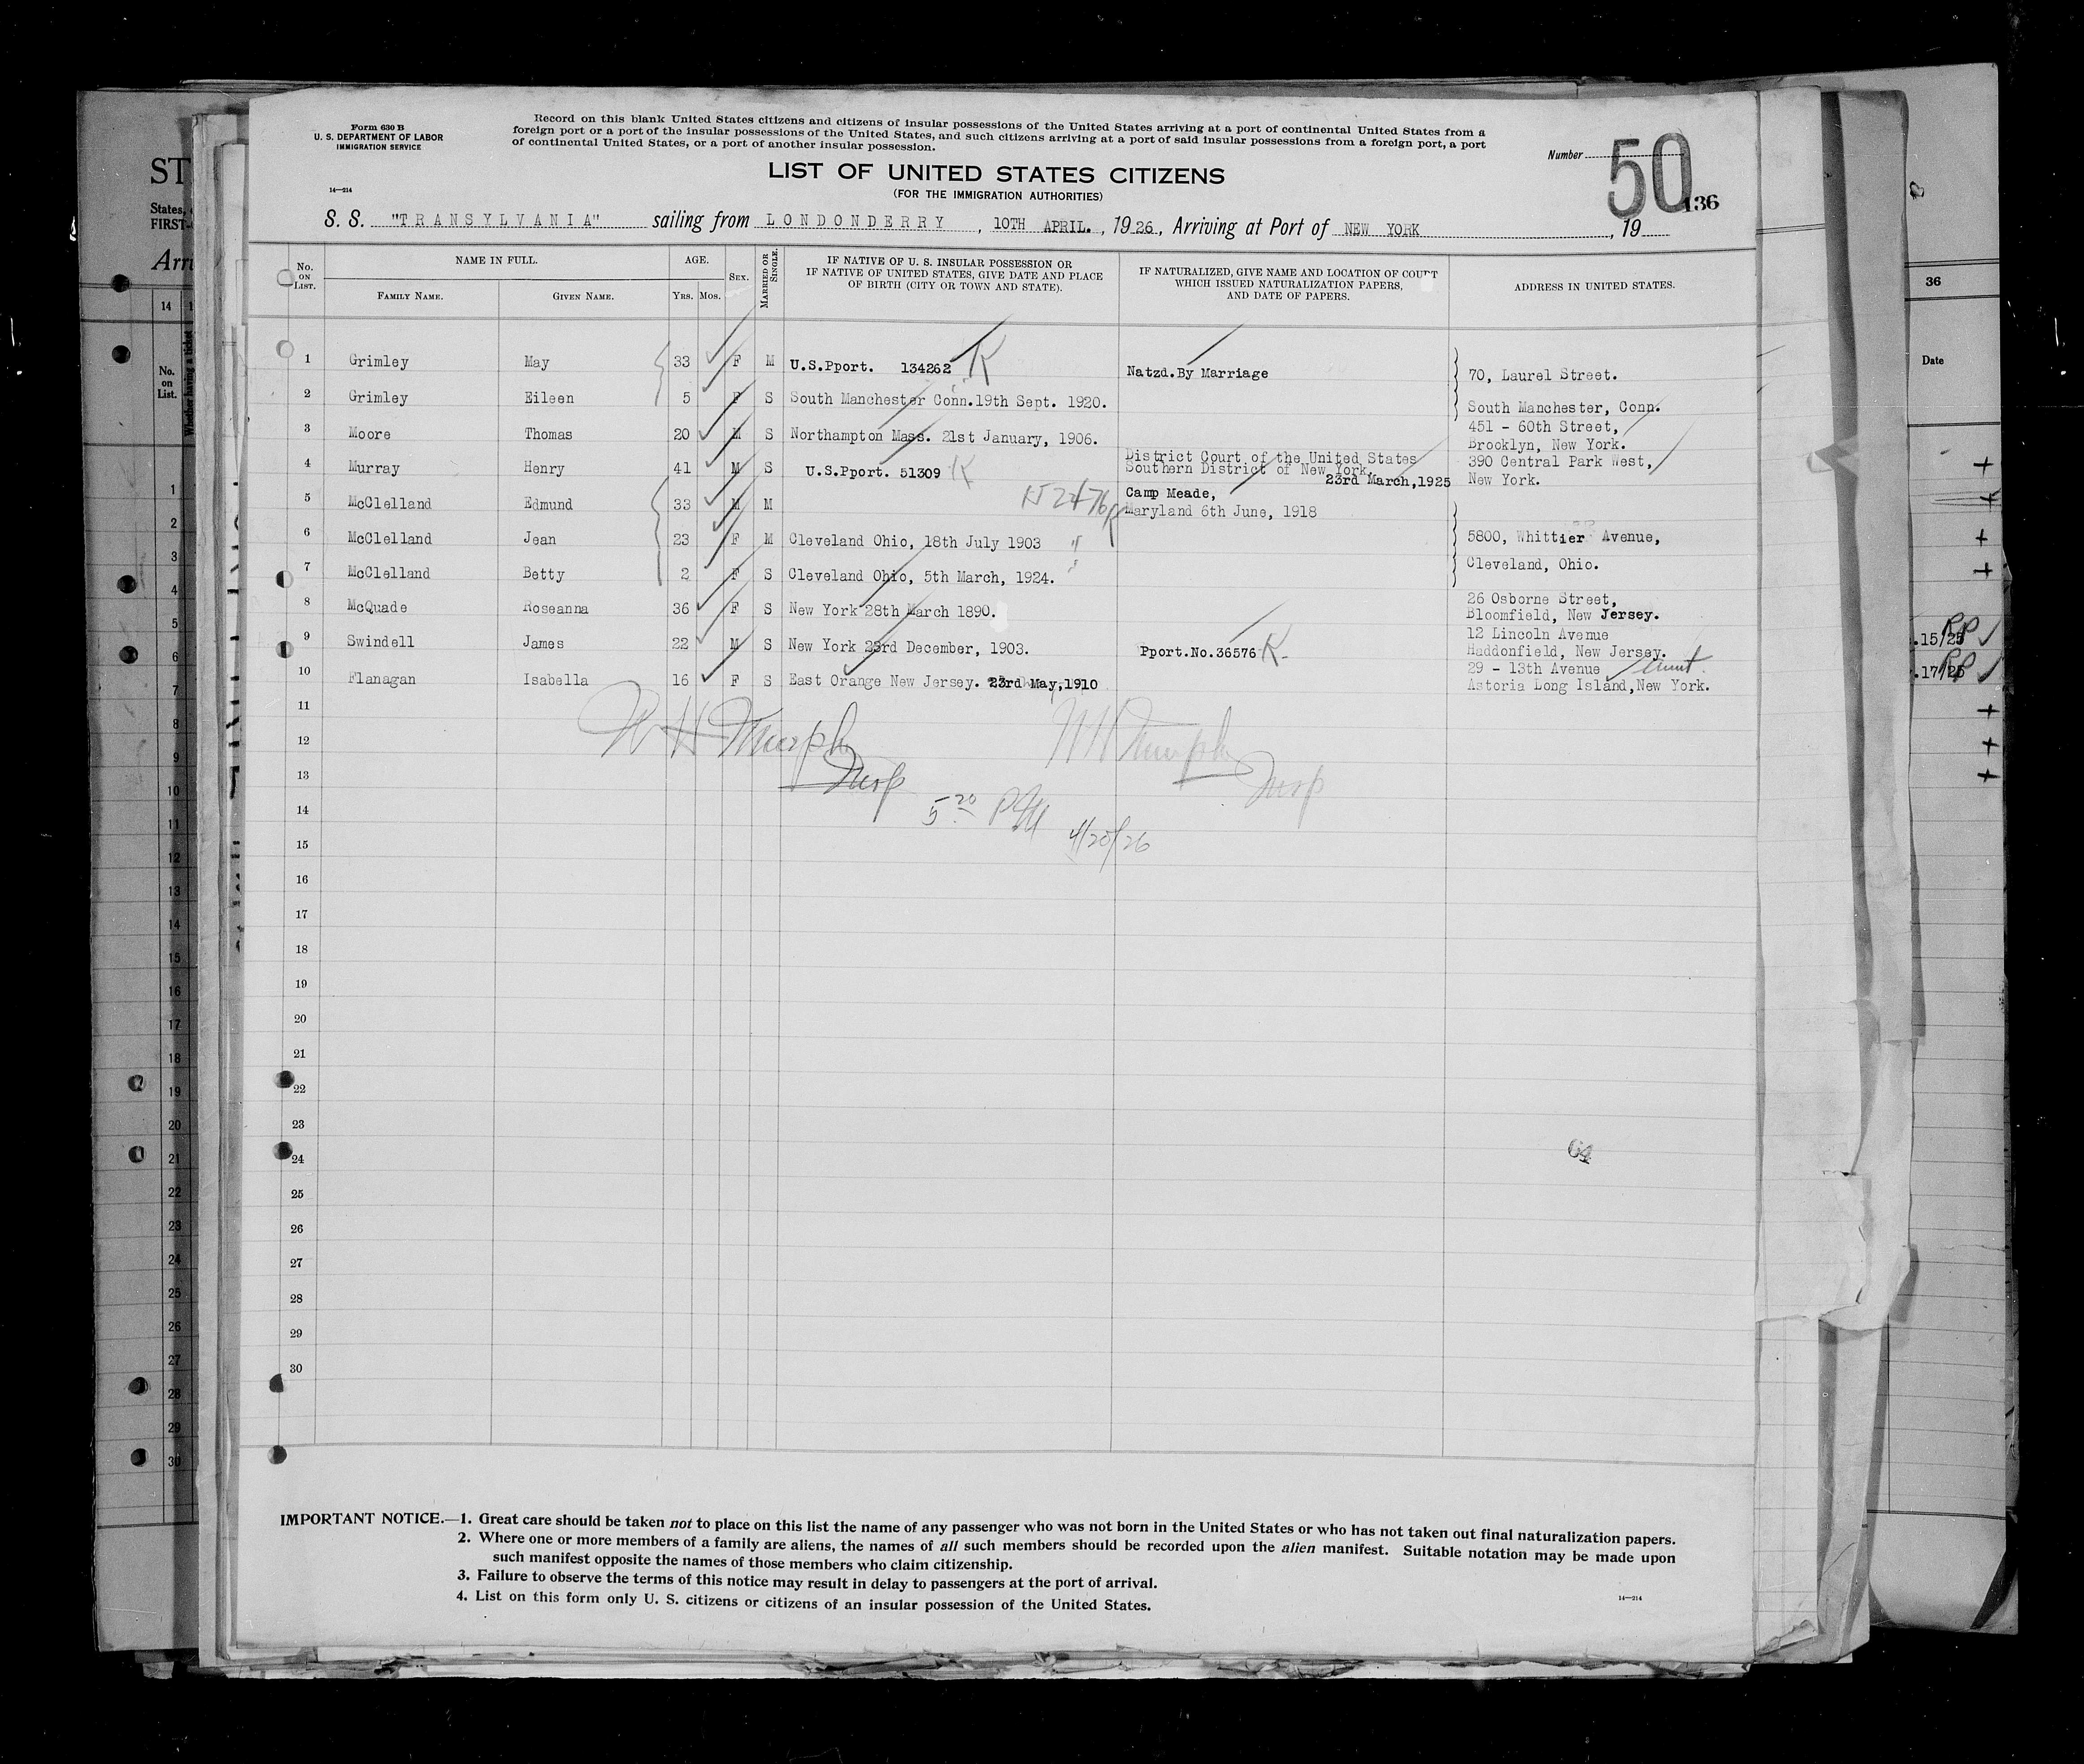 Form 630 B
U. S. DEPARTMENT OF LABOR
IMMIGRATION SERVICE
14—214
Record on this blank United States citizens and citizens of insular possessions of the United States arriving at a port of continental United States from a
foreign port or a port of the insular possessions of the United States, and such citizens arriving at a port of said insular possessions from a foreign port, a port
of continental United States, or a port of another insular possession.
LIST OF UNITED STATES CITIZENS
(FOR THE IMMIGRATION AUTHORITIES)
Number 50
136
S. S. "TRANSYLVANIA" sailing from LONDONDERRY, 10TH APRIL., 1926, Arriving at Port of NEW YORK, 19
No. ON LIST. NAME IN FULL. AGE. SEX. MARRIED OR SINGLE. IF NATIVE OF U. S. INSULAR POSSESSION OR IF NATIVE OF UNITED STATES, GIVE DATE AND PLACE OF BIRTH (CITY OR TOWN AND STATE). IF NATURALIZED, GIVE NAME AND LOCATION OF COURT WHICH ISSUED NATURALIZATION PAPERS, AND DATE OF PAPERS. ADDRESS IN UNITED STATES.
FAMILY NAME. GIVEN NAME. YRS. MOS.
1 Grimley May 33 F M U.S.Pport. 134262 K Natzd.By Marriage 70, Laurel Street.
2 Grimley Eileen 5 F S South Manchester Conn.19th Sept. 1920. South Manchester, Conn.
3 Moore Thomas 20 M S Northampton Mass. 21st January, 1906. 451 - 60th Street, Brooklyn, New York.
4 Murray Henry 41 M S U.S.Pport. 51309 K District Court of the United States Southern District of New York, 23rd March,1925 390 Central Park West, New York.
5 McClelland Edmund 33 M M Camp Meade, Maryland 6th June, 1918
6 McClelland Jean 23 F M Cleveland Ohio, 18th July 1903 " 5800, Whittier Avenue,
7 McClelland Betty 2 F S Cleveland Ohio, 5th March, 1924. " Cleveland, Ohio.
8 McQuade Roseanna 36 F S New York 28th March 1890. 26 Osborne Street, Bloomfield, New Jersey.
9 Swindell James 22 M S New York 23rd December, 1903. Pport.No.36576 K- 12 Lincoln Avenue Haddonfield, New Jersey.
10 Flanagan Isabella 16 F S East Orange New Jersey. 23rd May,1910 29 - 13th Avenue Aunt Astoria Long Island,New York.
11
12
13
14
15
16
17
18
19
20
21
22
23
24
25
26
27
28
29
30
W H Murphy
Insp
W H Murphy
Insp
5 20 PM
4/20/26
64
IMPORTANT NOTICE.—1. Great care should be taken not to place on this list the name of any passenger who was not born in the United States or who has not taken out final naturalization papers.
2. Where one or more members of a family are aliens, the names of all such members should be recorded upon the alien manifest. Suitable notation may be made upon
such manifest opposite the names of those members who claim citizenship.
3. Failure to observe the terms of this notice may result in delay to passengers at the port of arrival.
4. List on this form only U. S. citizens or citizens of an insular possession of the United States.
14—214
ST
States,
FIRST-
Arri
14
No. on List.
Whether having a ticket
1
2
3
4
5
6
7
8
9
10
11
12
13
14
15
16
17
18
19
20
21
22
23
24
25
26
27
28
29
30
36
Date
.15/25 RP
.17/25 RP